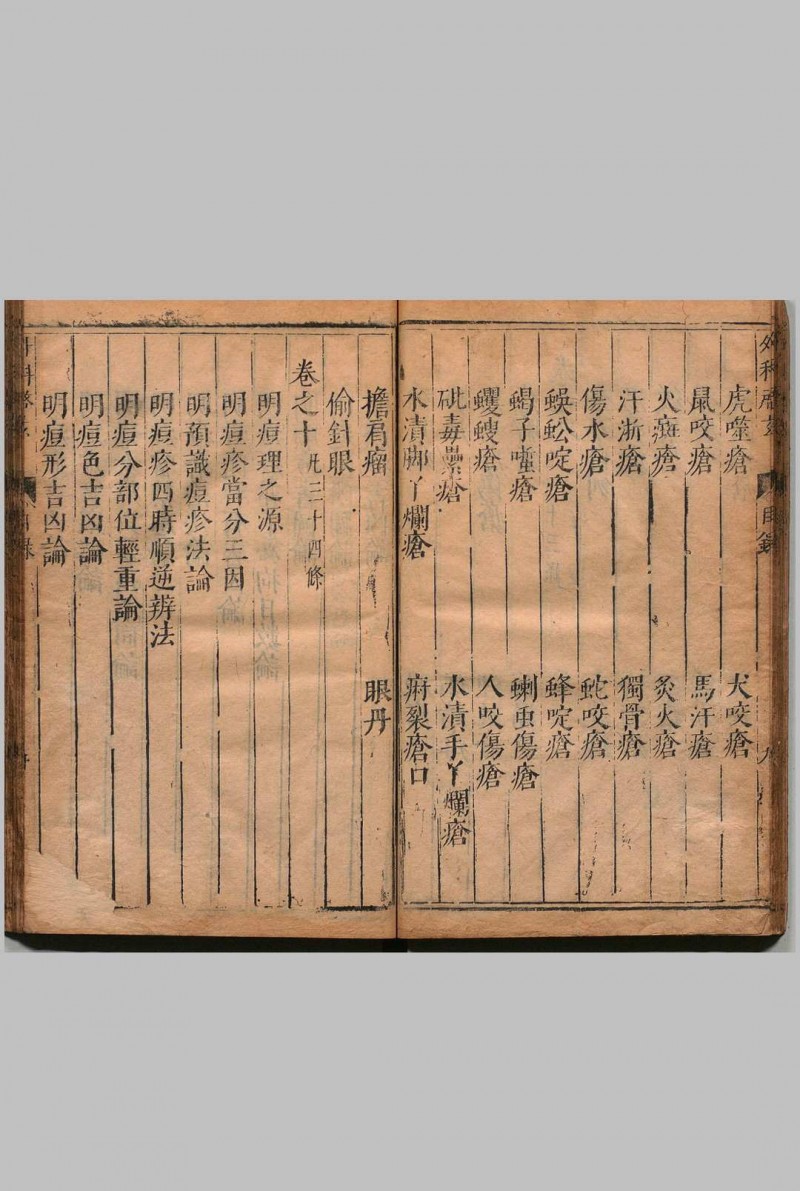 虎噬瘡　犬咬瘡
鼠咬瘡　馬汗瘡
火斑瘡　炙火瘡
汗淅瘡　獨骨瘡
傷水瘡　蛇咬瘡
蜈蚣啶瘡　蜂啶瘡
蝎子瘡　蝍虫傷瘡
蠼螋瘡　人咬傷瘡
砒毒瘡　水漬手丫爛瘡
水漬脚丫爛瘡　裂瘡口
擔肩瘤　眼丹
偷針眼
卷之十　凡三十四條
明痘理之源
明痘疹當分三因
明預識痘疹法論
明痘疹四時順逆辨法
明痘分部位輕重論
明痘色吉凶論
明痘形吉凶論